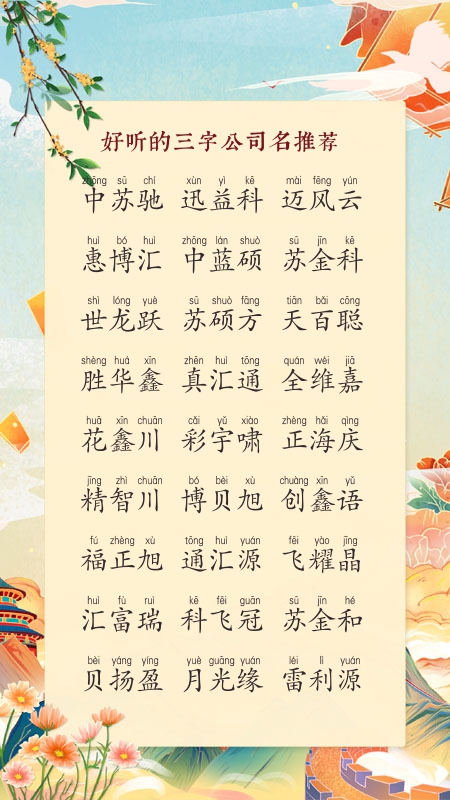 好听的三字公司名推荐
zhōng sū chí xùn yì kē mài fēng yún
中苏驰 迅益科 迈风云
huì bó huì zhōng lán shuò sū jīn kē
惠博汇 中蓝硕 苏金科
shì lóng yuè sū shuò fāng tiān bǎi cōng
世龙跃 苏硕方 天百聪
shèng huá xīn zhēn huì tōng quán wéi jiā
胜华鑫 真汇通 全维嘉
huā xīn chuān cǎi yǔ xiào zhèng hǎi qìng
花鑫川 彩宇啸 正海庆
jīng zhì chuān bó bèi xù chuàng xīn yǔ
精智川 博贝旭 创鑫语
fú zhèng xù tōng huì yuán fēi yào jīng
福正旭 通汇源 飞耀晶
huì fù ruì kē fēi guān sū jīn hé
汇富瑞 科飞冠 苏金和
bèi yáng yíng yuè guāng yuán léi lì yuán
贝扬盈 月光缘 雷利源